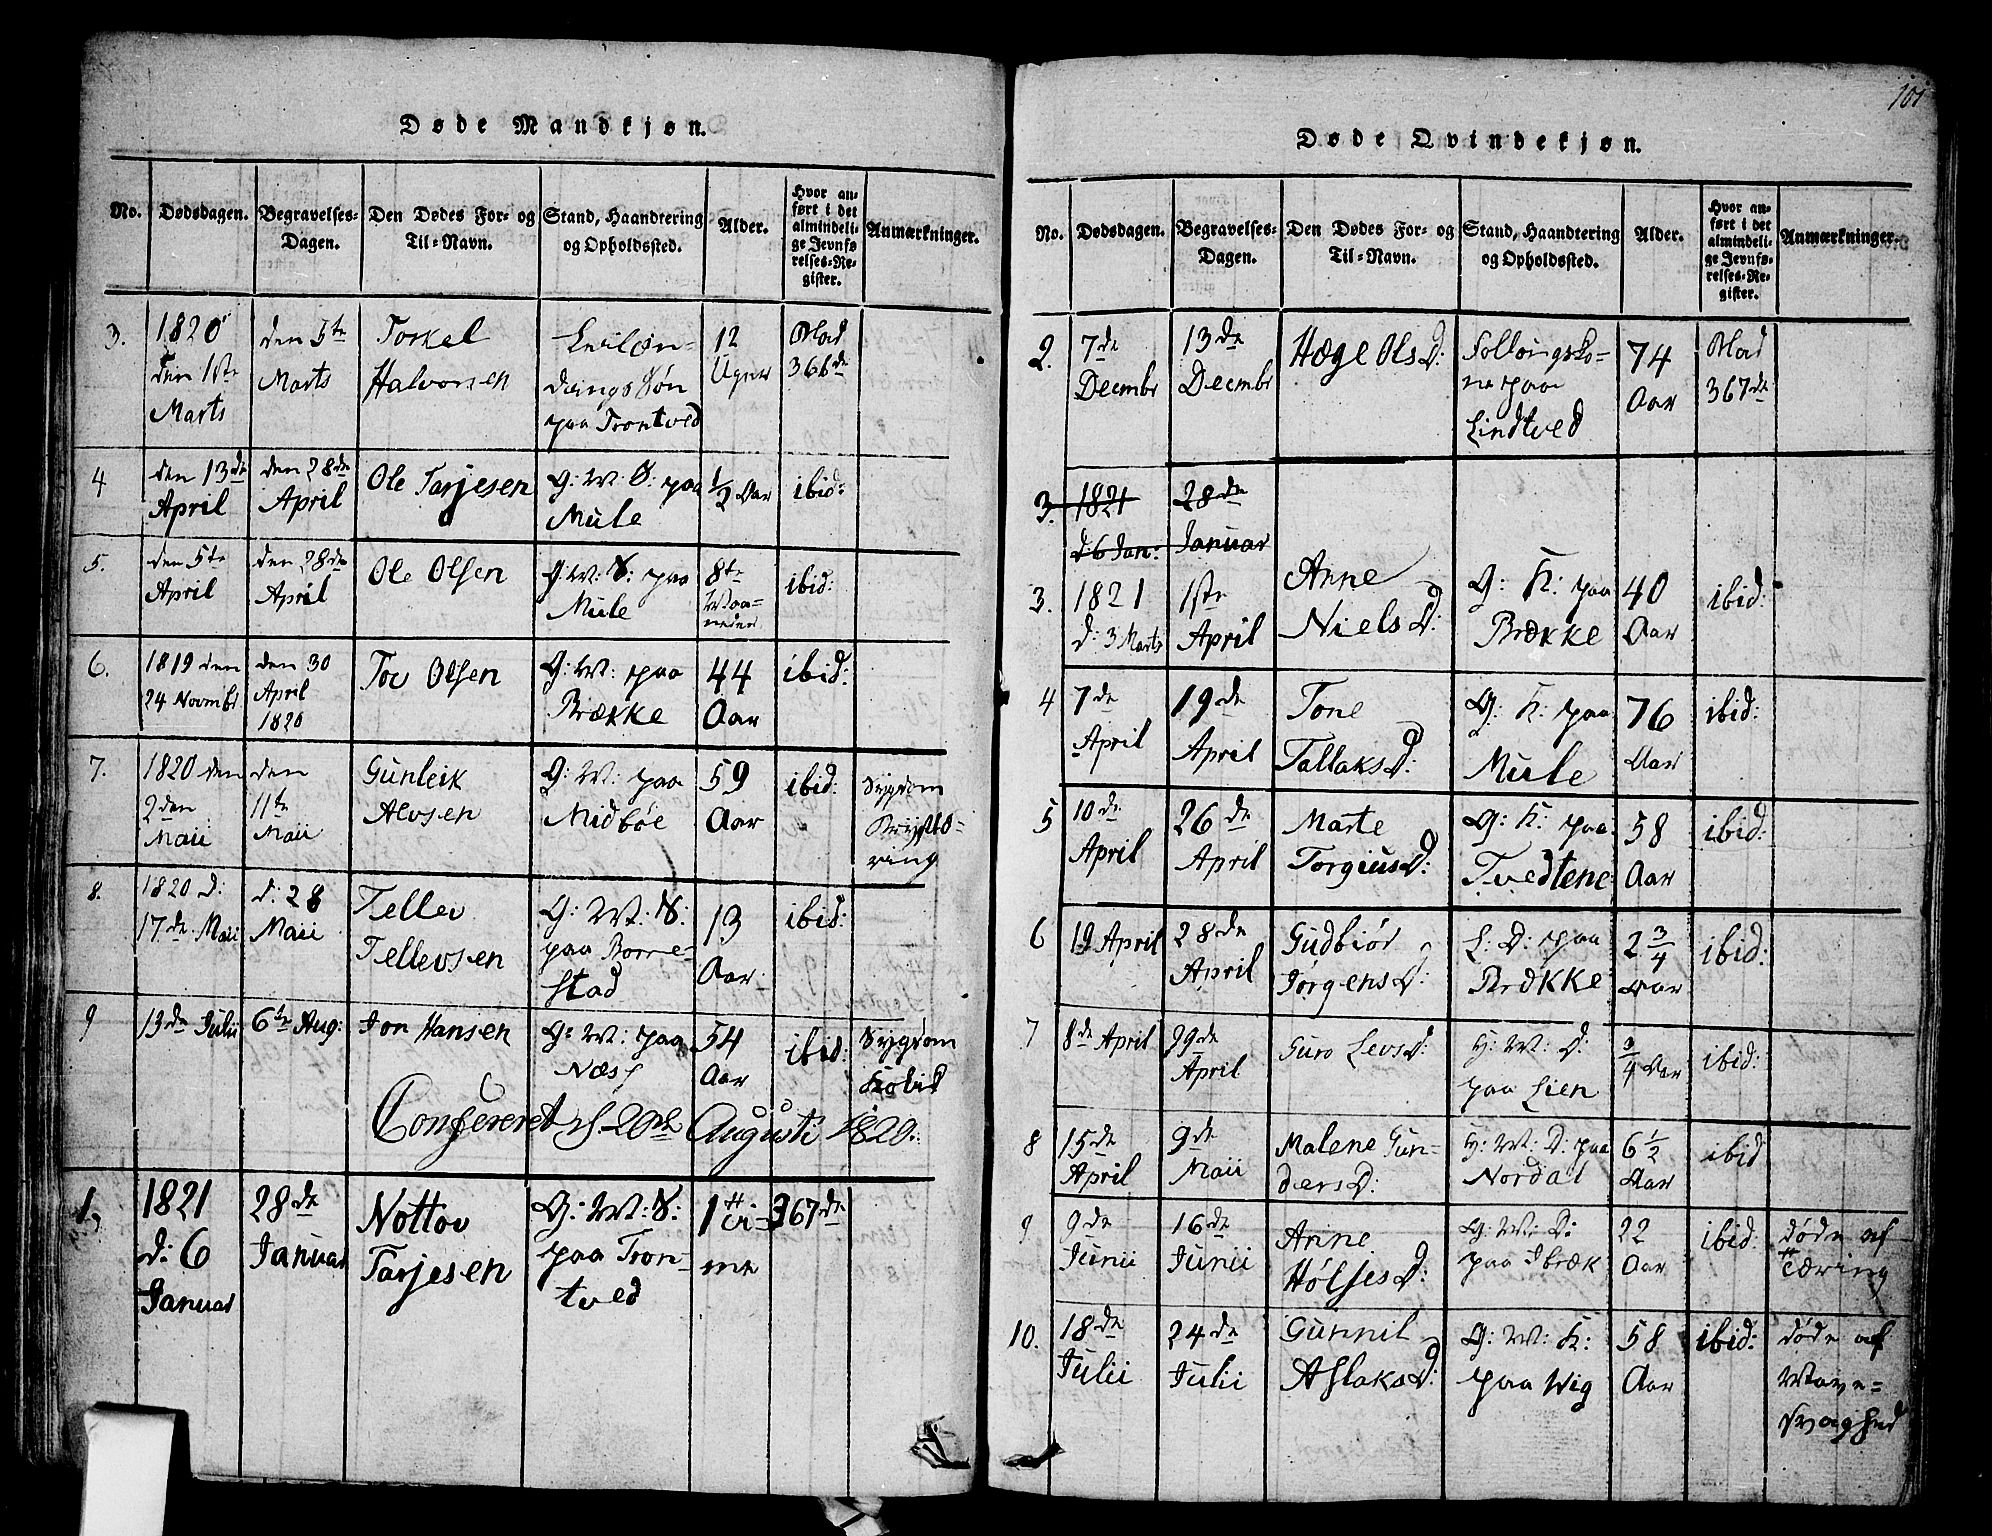 Døde Mandkjøn.
No. Dødsdagen. Begravelses-Dagen. Den Dødes For- og Til-Navn. Stand, Haandtering og Opholdssted. Alder. Hvor anført i det almindelige Jevnførelses-Register. Anmærkninger.
3. 1820 den 1ste Marts den 5te Marts Torkel Halvorsen paa Trontved 12 Uger Blad 366de
4 den 13de April den 28de April Ole Tarjesen G: M: S: paa Mule ½ Aar ibid:
5. den 5te April den 28de April Ole Olsen G: M: S: paa Mule 8te Maaneder ibid:
6. 1819 den 24 Novmbr den 30 April 1820 Tov Olsen G: M: paa Brække 44 Aar ibid:
7. 1820 den 2den Maii den 11te Maii Gunleik Alvsen G: M: paa Midbøe 59 Aar ibid: Sygdom
8. 1820 d: 17de Maii d: 28 Maii Tellev Tellevsen G: M: S: paa Borrestad 13 Aar ibid:
9 13de Julii 6te Aug: Jon Hansen G: M: paa Næs 54 Aar ibid: Sygdom
Confereret d. 20de Augusti 1820.
1. 1821 d: 6 Januar 28de Januar Nottov Tarjesen G: M: S: paa Trontved 1 Time 367de
101
Døde Qvindekjøn.
No. Dødsdagen. Begravelses-Dagen. Den Dødes For- og Til-Navn. Stand, Haandtering og Opholdssted. Alder. Hvor anført i det almindelige Jevnførelses-Register. Anmærkninger.
2. 7de Decmbr 13de Decmbr Hæge Ols D: paa Lindtved 74 Aar Blad 367de
3. 1821 d: 6 Jan: 28de Januar
3. 1821 d: 3 Marts 1ste April Anne Niels D: G: K: paa Brække 40 Aar ibid:
4 7de April 19de April Tone Tallaks D: G: K: paa Mule 76 Aar ibid:
5 10de April 26de April Marte Torgius D: G: K: paa Tvedtene 58 Aar ibid:
6 19 April 28de April Gudbiør Jørgens D: L: D: paa Brække 2 ¾ Aar ibid:
7 8de April 29de April Guro Levs D: H: M: D: paa Lien ¾ Aar ibid:
8 15de April 9de Maii Malene Gunders D: H: M: D: paa Nordal 6 ½ Aar ibid
9 9de Junii 16de Junii Anne Hølses D: G: M: D: paa Ibræk 22 Aar ibid: døde af Tæring
10. 18de Julii 24de Julii Gunnil Aslaks D: G: M: K: paa Wig 58 Aar ibid: døde af